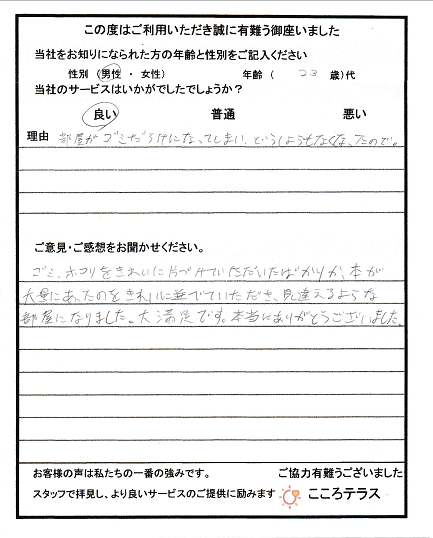 この度はご利用いただき誠に有難う御座いました
当社をお知りになられた方の年齢と性別をご記入ください
性別（男性 ・ 女性） 年齢（ 23 歳）代
当社のサービスはいかがでしたでしょうか？
良い 普通 悪い
理由 部屋がゴミだらけになってしまい、どうしようもなくなったので。
ご意見・ご感想をお聞かせください。
ゴミ、ホコリをきれいに片づけていただいたばかりか、本が
大量にあったのをきれいに並べていただき、見違えるような
部屋になりました。大満足です。本当にありがとうございました。
お客様の声は私たちの一番の強みです。 ご協力有難うございました
スタッフで拝見し、より良いサービスのご提供に励みます こころテラス